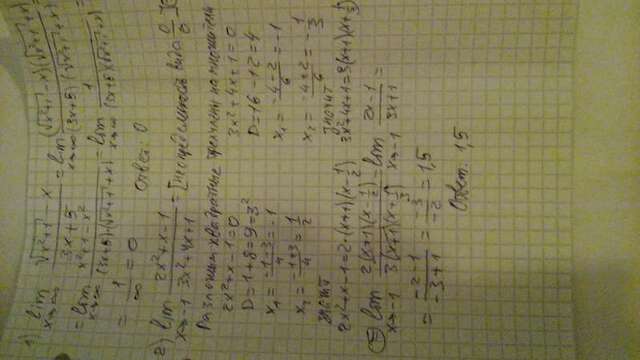 1) lim x→∞ (√(x²+1) − x)/(3x+5) = lim x→∞ ((√(x²+1) − x)(√(x²+1)+x))/((3x+5)(√(x²+1)+x)) =
= lim x→∞ (x²+1−x²)/((3x+5)(√(x²+1)+x)) = lim x→∞ 1/((3x+5)(√(x²+1)+x)) =
= 1/∞ = 0
Ответ: 0
2) lim x→−1 (2x²+x−1)/(3x²+4x+1) = [неопределенность вида 0/0]
Разложим квадратные трехчлены на множители
2x²+x−1=0
D=1+8=9=3²
x₁ = (−1−3)/4 = −1
x₂ = (−1+3)/4 = 1/2
Значит
2x²+x−1=2·(x+1)(x−1/2)
3x²+4x+1=0
D=16−12=4
x₁ = (−4−2)/6 = −1
x₂ = (−4+2)/6 = −1/3
Значит
3x²+4x+1=3(x+1)(x+1/3)
= lim x→−1 (2(x+1)(x−1/2))/(3(x+1)(x+1/3)) = lim x→−1 (2x−1)/(3x+1) =
= (−2−1)/(−3+1) = −3/−2 = 1,5
Ответ: 1,5